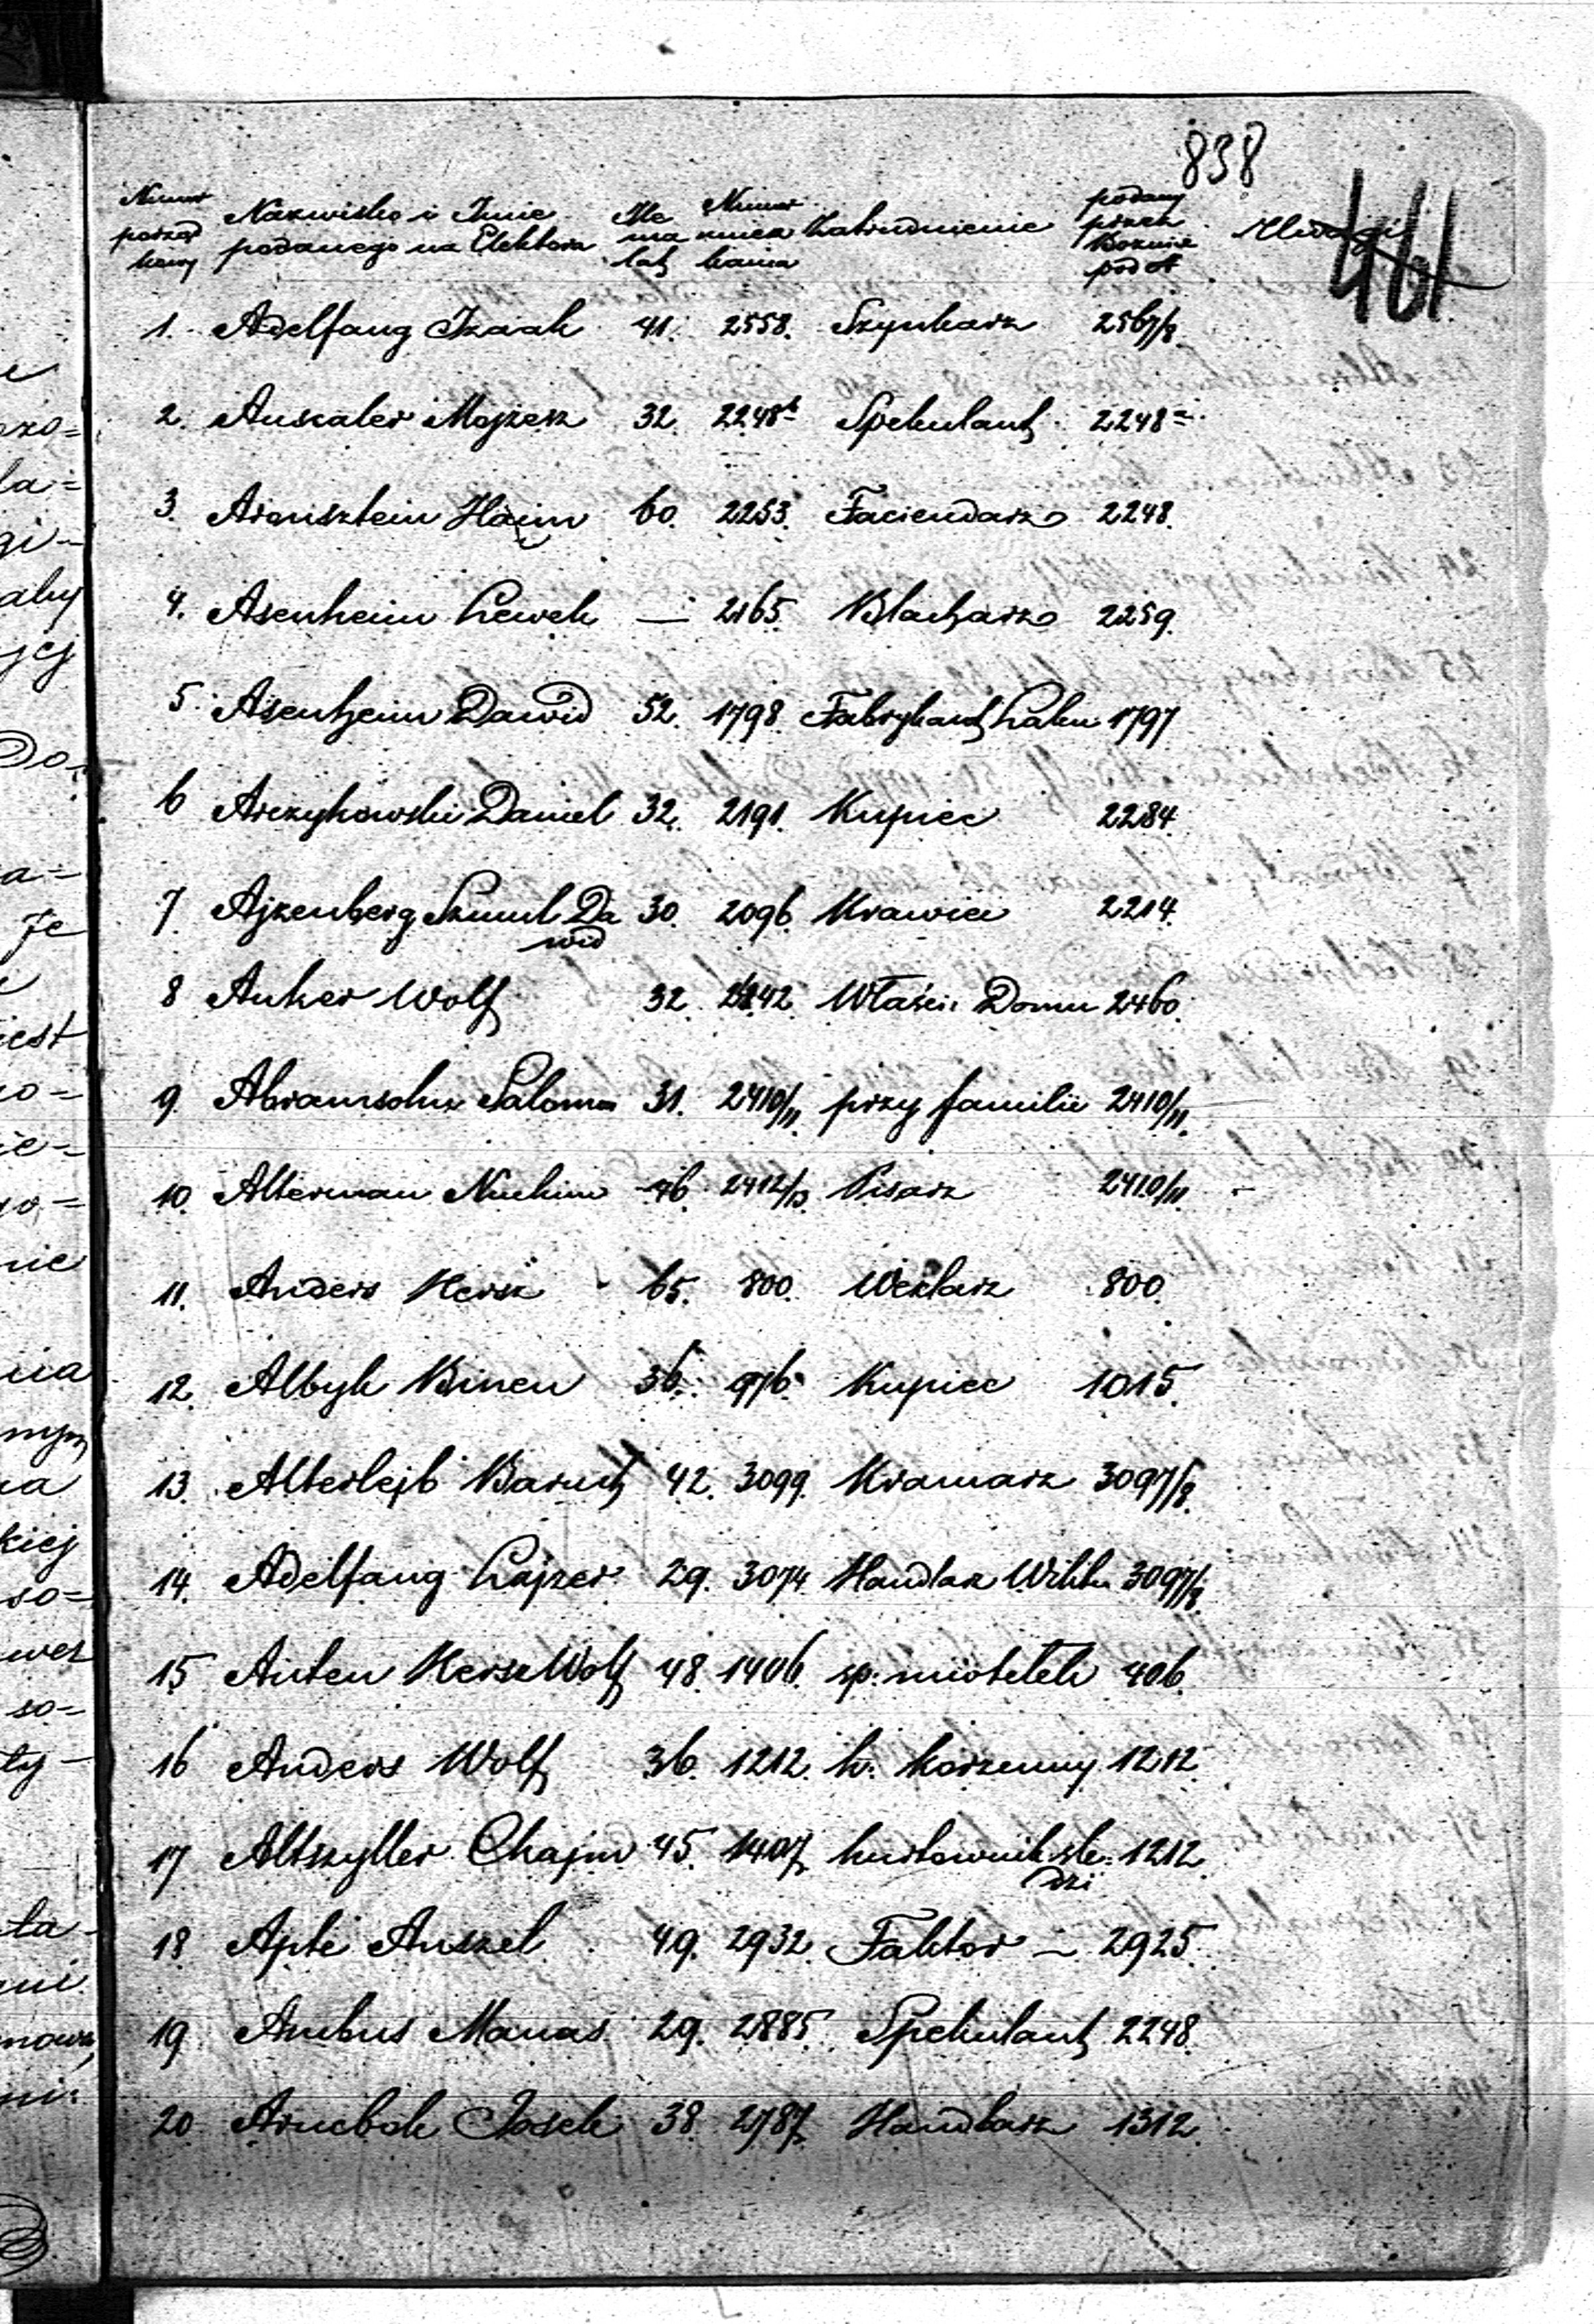 838
461
Numer porząd kowy Nazwisko i Imie podanego na Elektora Ile ma lat Numer zamiesz kania Zatrudnienie podany przez Boznice pod № Uwagi
1. Adelfang Izaak 41. 2558. Szynkarz 2567/8.
2. Auskaler Mojzesz 32. 2248 Spekulant 2248
3. Aronsztein Haim 60. 2253. Faciendarz 2248.
4. Asenheim Lewek — 2165. Blacharz 2259.
5. Asenheim Dawid 52. 1798. Fabrykant Laku 1797
6 Arczykowski Daniel 32. 2191. Kupiec 2284.
7. Ajzenberg Szmul Da 30. 2096. Krawiec 2214.
wid
8 Anker Wolf 32. Właści: Domu 2460.
9. Abramsohn Salomon 31. 2410/11. przy familii 2410/11.
10. Alterman Nuchim 46. 2412/13. Pisarz 2410/11.
11. Anders Hersz 65. 800. Wexlarz 800.
12. Albyk Binen 36. 976. Kupiec 1015.
13. Alterlejb Baruch 42. 3099. Kramarz 3097/8.
14. Adelfang Lajzer 29. 3074. Handlarz Wiktu 3097/8.
15 Anten Hersz Wolf 48. 1406. sp: miotełek 406.
16 Anders Wolf 36. 1212. h: korzenny 1212.
17 Altszyller Chajm 45. 1407. hurtownik śle: 1212
dzi
18 Apte Anszel 49. 2932. Faktor — 2925.
19. Ambus Manas 29. 2885. Spekulant 2248.
20 Josek 38. 2787. Handlarz 1312.